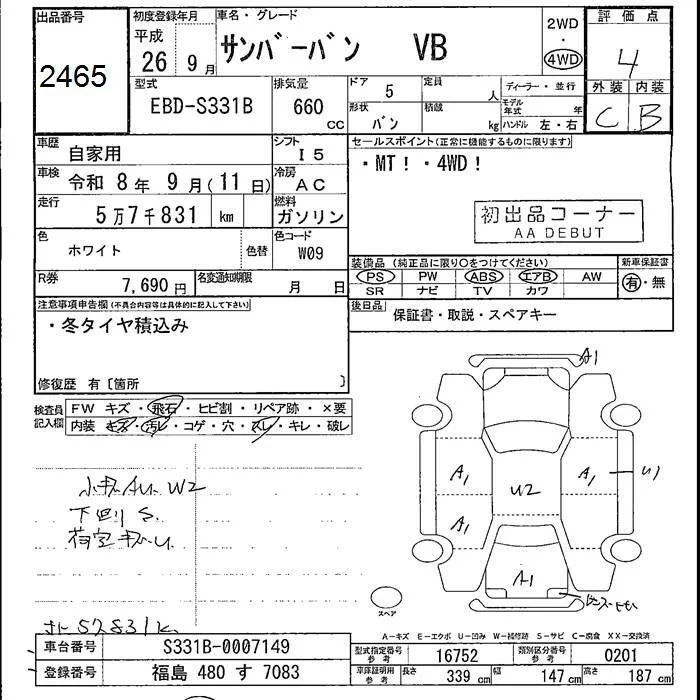 出品番号
2465
初度登録年月
平成
26 9月
車名・グレード
サンバーバン VB
2WD
・
4WD
評価点
4
外装 内装
C B
型式
EBD-S331B
排気量
660
CC
ドア
5
定員
人
形状
バン
積載
kg
ディーラー・並行
モデル年式
年
ハンドル 左・右
車歴
自家用
シフト
I5
車検
令和 8年 9月(11日)
冷房
AC
走行
5万7千831 km
燃料
ガソリン
色
ホワイト
色替
色コード
W09
R券
7,690円
名変通知期限
月 日
セールスポイント(正常に機能するものに限ります)
・MT!・4WD!
初出品コーナー
AA DEBUT
装備品 (純正品に限り○をつけてください)
PS PW ABS エアB AW
SR ナビ TV カワ
新車保証書
有・無
後日品
保証書・取説・スペアキー
注意事項申告欄(不具合内容等は具体的に記入して下さい)
・冬タイヤ積込み
修復歴 有〔箇所 〕
検査員記入欄
FW キズ・飛石・ヒビ割・リペア跡・×要
内装 キズ・汚レ・コゲ・穴・スレ・キレ・破レ
小キズ AU W2
下回り S
荷室キズ U
57831k
A1
A1
A1
U1
A1
U2
A1
スペア
A-キズ E-エクボ U-凹み W-補修跡 S-サビ C-腐食 XX-交換済
車台番号
S331B-0007149
登録番号
福島 480 す 7083
型式指定番号
参考
16752
類別区分番号
参考
0201
車庫証明用
参考
長さ
339 cm
幅
147 cm
高さ
187 cm